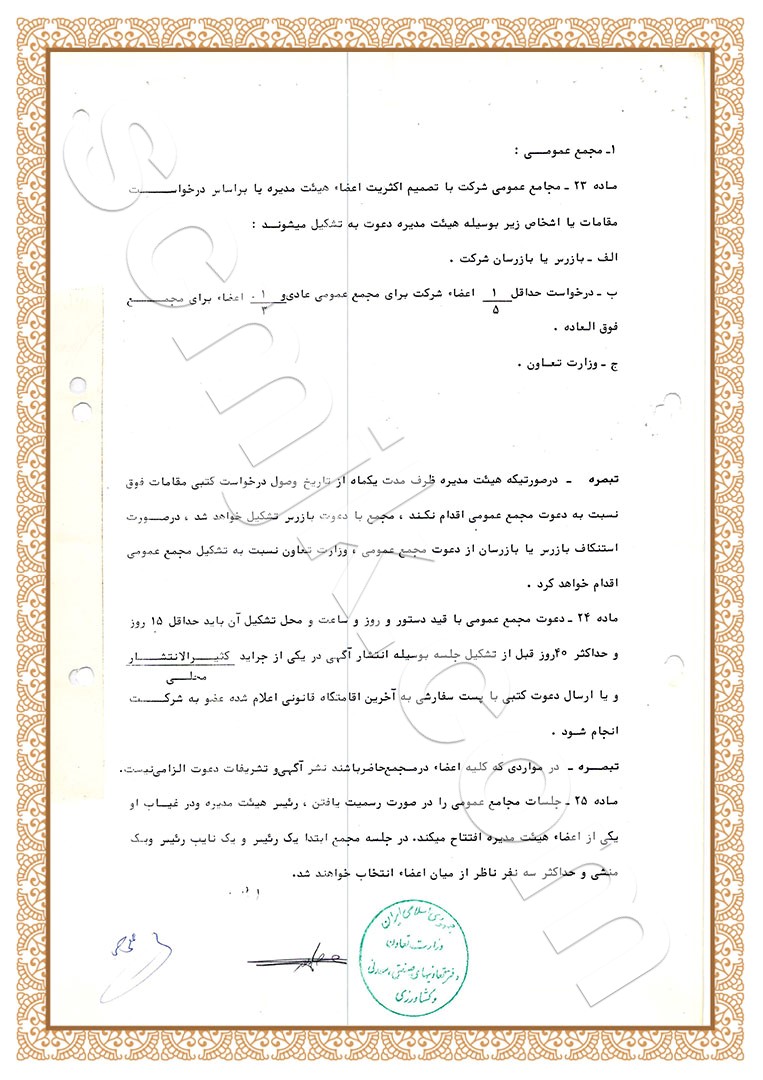 ۱ـ مجمع عمومــی :
ماده ۲۳ ـ مجامع عمومی شرکت با تصمیم اکثریت اعضاء هیئت مدیره یا براساس درخواســــــت
مقامات یا اشخاص زیر بوسیله هیئت مدیره دعوت به تشکیل میشونــد :
الف ـ بازرس یا بازرسان شرکت .
ب ـ درخواست حداقل ۱/۵ اعضاء شرکت برای مجمع عمومی عادی و ۱/۳ اعضاء برای مجمــــع
فوق العاده .
ج ـ وزارت تعـاون .
تبصره ـ درصورتیکه هیئت مدیره ظرف مدت یکماه از تاریخ وصول درخواست کتبی مقامات فوق
نسبت به دعوت مجمع عمومی اقدام نکـند ، مجمع با دعوت بازرس تشکیل خواهد شد ، درصـورت
استنکاف بازرس یا بازرسان از دعوت مجمع عمومی ، وزارت تعاون نسبت به تشکیل مجمع عمومی
اقدام خواهد کرد .
ماده ۲۴ ـ دعوت مجمع عمومی با قید دستور و روز و ساعت و محل تشکیل آن باید حداقل ۱۵ روز
و حداکثر ۴۰روز قبل از تشکیل جلسه بوسیله انتشار آگهی در یکی از جراید کثیــرالانتشــار
محلــی
و یا ارسال دعوت کتبی با پست سفارشی به آخرین اقامتگاه قانونی اعلام شده عضو به شرکـــت
انجام شـود .
تبصــره ـ در مواردی که کلیه اعضاء درمـجمع‌حاضرباشند نشر آگهی‌و تشریفات دعوت الزامی‌نیست.
ماده ۲۵ ـ جلسات مجامع عمومی را در صورت رسمیت یافتن ، رئیـر هیئت مدیره ودر غیـاب او
یکی از اعضاء هیئت مدیره افتتاح میکند. در جلسه مجمع ابتدا یک رئیـر و یک نایب رئیـر ویـک
منشی و حداکثر سه نفر ناظر از میان اعضاء انتخاب خواهند شد.
جمهوری اسلامی ایران
وزارت تعاون
دفتر تعاونیهای صنعتی، معدنی
و کشاورزی